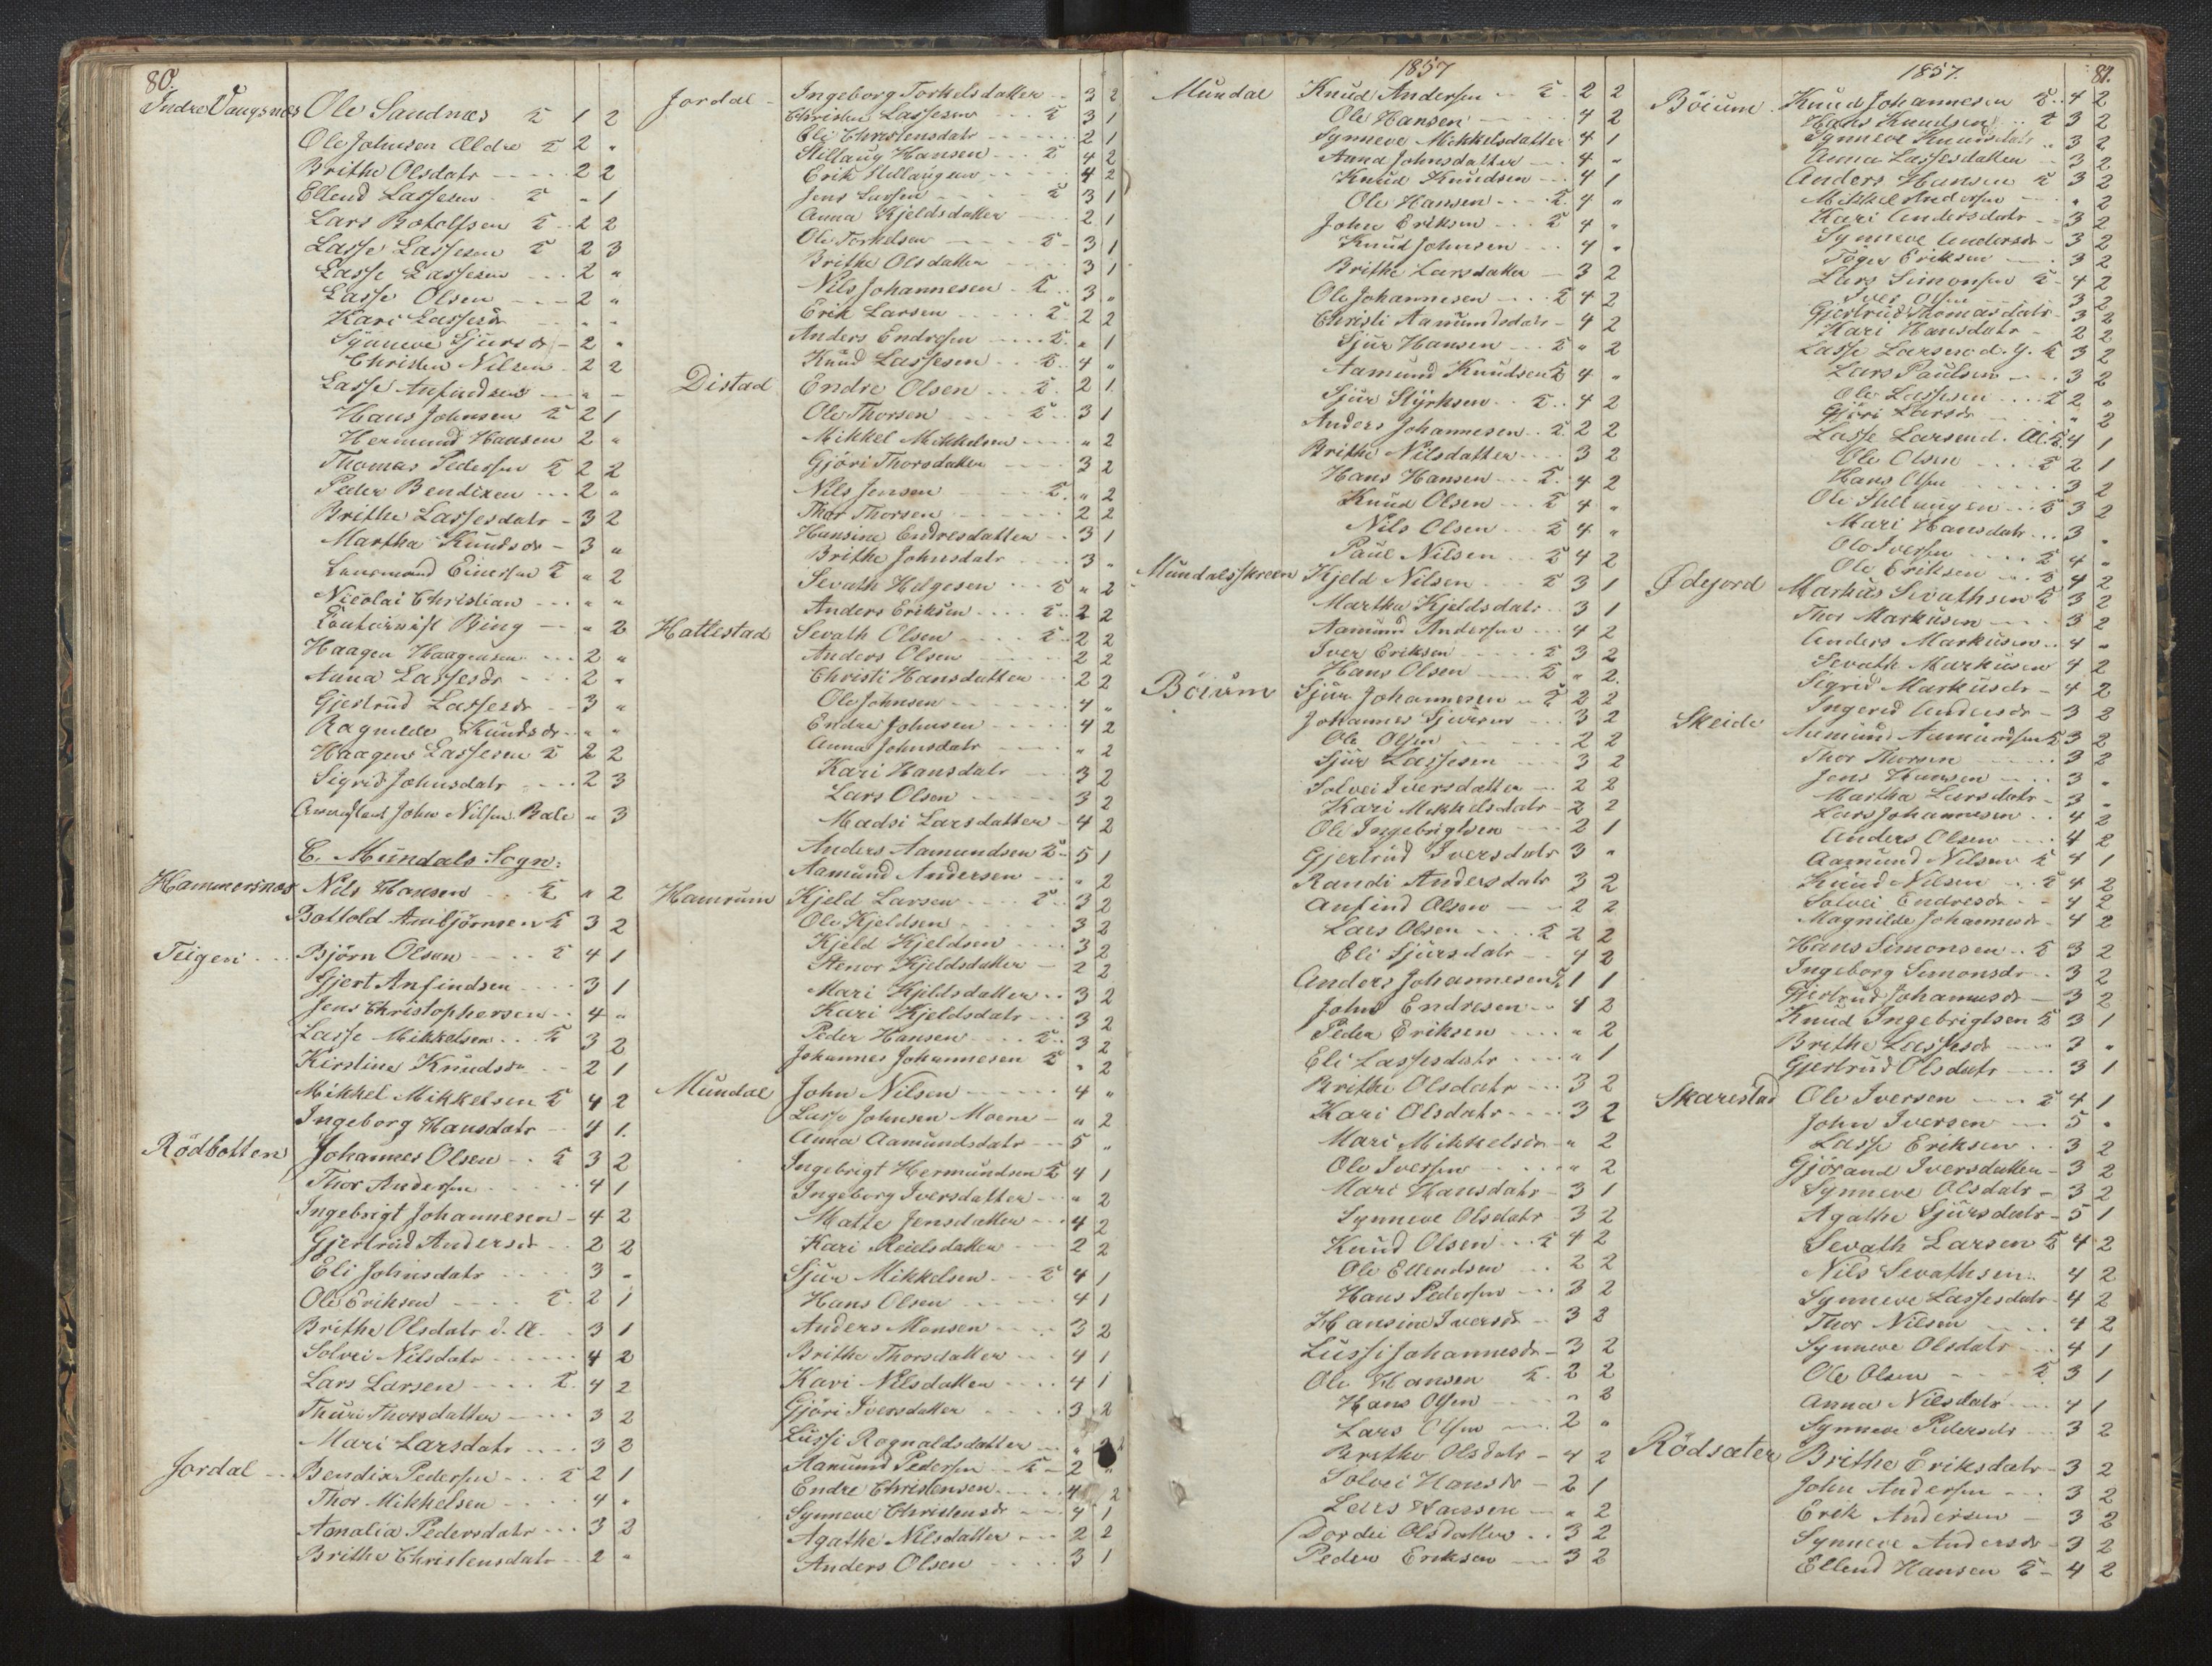 80.
Indre Vangsnes Ole Sandnæs Σ 1 2
Ole Johnsen Ældre Σ 2 "
Brithe Olsdatr - - - - 2 2
Ellend Lassesen - Σ " 1
Lars Botolfsen Σ - 2 2
Lasse Lassesen Σ 2 3
Lasse Lassesen - - - 2 "
Lasse Olsen - - - 2 "
Kari Lassesdr - - -
Synneve Sjursdr - 2 "
Christen Nilsen - 2 2
Lasse Anfindsen - - " -
Hans Johnsen Σ 2 1
Hermund Hansen 2 "
Thomas Pedersen Σ 2 2
Peder Bendixen - - - 2 "
Brithe Lassesdatr - 3 2
Martha Knudsdr - 3 "
Einersen Σ " 2
Nicolai Christian - - - " "
Bing - - " 2
Haagen Haagensen - - - 2 "
Anna Lassesdr - - - 2 "
Gjertrud Lassesdr - - 3 "
Ragnilde Knudsdr - - " "
Haagen Lassesen Σ 2 2
Sigrid Johnsdatr - - - 2 3
John Nilsen Bale " 3
C. Mundals Sogn:
Hammersnæs Nils Hansen - - Σ " 2
Bottold Ambjörnsen Σ 3 2
Teigen - - - Björn Olsen - - - - Σ 4 1
Gjert Anfindsen - - - - 3 1
Jens Christophersen - - 4 "
Lasse Mikkelsen - - - Σ 3 2
Kirstine Knudsdr - - 2 1
Mikkel Mikkelsen Σ 4 2
Ingeborg Hansdatr - - 4 1.
Rödbotten Johannes Olsen - - Σ 3 2
Thor Andersen - - - - 4 1
Ingebrigt Johannesen - 4 2
Gjertrud Andersdr - - 2 2
Eli Johnsdatr - - - - 3 "
Ole Eriksen - - - - Σ. 2 1
Brithe Olsdatr d. Æ. - - 3 1
Solvei Nilsdatr - - - - - 4 2
Lars Larsen - - - - Σ. 4 2
Thuri Thorsdatter - - - - 3 2
Mari Larsdatr - - - - 3 2
Jordal - - Bendix Pedersen - - - Σ 2 1
Thor Mikkelsen - - - - 4 "
Amalia Pedersdatr - - - 3 2
Brithe Christensdatr - - 2 "
Jordal - Ingeborg Torkelsdatter - - 3 2
Christen Lassesen - - - Σ 3 1
Eli Christensdatr - - - - - - 2 1
Stillaug Hansen - - - Σ 4 2
Erik Stillaugsen - - - - - 4 2
Jens Larsen - - - - - Σ 3 1
Anna Kjeldsdatter - - - 2 1
Ole Torkelsen - - - - - Σ - 3 1
Brithe Olsdatter - - - - 3 1
Nils Johannesen - Σ - - 3 "
Erik Larsen - - - - - Σ - 2 2
Anders Endresen - - - - - Σ. " 1
Knud Lassesen - - - Σ. 4 "
Distad Endre Olsen - - - Σ. 2 1
Ole Thorsen - - - - Σ - - 3 1
Mikkel Mikkelsen - - - - " 2
Gjöri Thorsdatter - - - - 3 2
Nils Jensen - - - - - Σ. " 2
Thor Thorsen - - - - - - 2 2
Hansine Endresdatter - - 3 1
Brithe Johnsdatr - - - - 3 "
Sevath Helgesen - - - Σ " 2
Anders Eriksen - - - - Σ - 2 2
Hattestad Sevath Olsen - - - - Σ - 2 2
Anders Olsen - - - - - - 2 2
Christi Hansdatter - - - 2 2
Ole Johnsen - - - - - - 4 "
Endre Johnsen - - - - - 4 2
Anna Johnsdatr - - - - - " 2
Kari Hansdatr - - - 3 2
Lars Olsen - - - - - 3 2
Madsi Larsdatter - - 4 2
Anders Aamundsen Σ - 5 1
Aamund Andersen - - - " 2
Hamrum Kjeld Larsen - - - - Σ - - 3 2
Ole Kjeldsen - - - - - - 3 2
Kjeld Kjeldsen - - - - 3 2
Stenor Kjeldsdatter - - 2 2
Mari Kjeldsdatter - - 3 2
Kari Kjeldsdatr - - - 3 2
Peder Hansen - - - - Σ - - 3 2
Johannes Johannesen Σ " 2
Mundal John Nilsen - - - - - - 4 "
Lasse Johnsen Moene - " 2
Anna Aamundsdatr - - 5 "
Ingebrigt Hermundsen Σ 4 1
Ingeborg Iversdatter - - " 2
Matte Jensdatter - - - 4 2
Kari Reielsdatter - - - 2 2
Sjur Mikkelsen - - - Σ 4 1
Hans Olsen - - - - - - 4 1
Anders Monsen - - - - 3 2
Brithe Thorsdatter - - - 4 1
Kari Nilsdatter - - - - 4 1
Gjöri Iversdatter - - - - 3 2
Lussi Rognaldsdatter - - - " 2
Aamund Pedersen - - Σ - 2 "
Endre Christensen - - - - 4 2
Synneve Christensdr - - - 4 1
Agathe Nilsdatter - - - 2 2
Anders Olsen - - - - 3 1
1857
Mundal Knud Andersen - - Σ - 2 2
Ole Hansen - - - - - 4 2
Synneve Mikkelsdatter 4 1
Anna Johnsdatter - - - 4 "
Knud Knudsen - - - 4 1
Ole Hansen - - - - Σ. 4 "
John Eriksen - - - Σ 4 "
Knud Johnsen - - - 4 "
Brithe Larsdatter - - 3 2
Ole Johannesen - - - Σ 4 2
Christi Aamundsdatr - 4 2
Sjur Hansen - - - Σ " 2
Aamund Knudsen Σ 4 "
Sjur Styrksen - - Σ - - 4 2
Anders Johannesen - - Σ. 2 2
Brithe Nilsdatter - - - - 3 2
Hans Hansen - - - Σ. 4 2
Knud Olsen - - - Σ 4 "
Nils Olsen - - - Σ 4 "
Paul Nilsen - - - Σ 4 2
Mundalsskreen Kjeld Nilsen - - - - Σ 3 1
Martha Kjeldsdatr - - 3 1
Aamund Andersen - - - 4 2
Iver Eriksen - - - - - Σ 3 2
Hans Olsen - - - - - Σ " 2.
Böium Sjur Johannesen - - Σ 2 2
Johannes Sjursen - - - 3 2
Ole Olsen - - - - - 2 2
Sjur Lassesen - - - 3 2
Solvei Iversdatter - - 2 2
Kari Mikkelsdatr - 2 2
Ole Ingebrigtsen - - - - 2 1
Gjertrud Iversdatr 3 "
Randi Andersdatr 3 2
Anfind Olsen - - - 2 2
Lars Olsen - - - - Σ 2 2
Eli Sjursdatr - - - 4 2
Anders Johannesen Σ 1 1
John Endresen - - 4 2
Peder Eriksen - - - - " 2
Eli Lassesdatr - - - - " 1
Brithe Olsdatr - - - 3 2
Kari Olsdatr - - - - 3 2
Mari Mikkelsdr - " 2
Ole Iversen - - - - - " 2
Mari Hansdatr - 3 1
Synneve Olsdatr - 3 2
Knud Olsen - - - Σ 4 2
Ole Ellendsen - - - 2 2
Hans Pedersen - - - 3 2
Hansine Iversdr - - 3 2
Lussi Johannesdr - 3 2
Ole Hansen Σ. 2 2
Hans Olsen - - - - " 2
Lars Olsen - - - 2 "
Brithe Olsdatr - 4 2
Solvei Hansdr - 2 1
Lars Hansen - - " 2
Dordei Olsdatter - - 3 2
Peder Eriksen - - - 3 2
1857. 81.
Böium - Knud Johannesen Σ - - 4 2
Hans Knudsen - - Σ 3 2
Synneve Knudsdatr - - 3 2
Anna Lassesdatter - - 3 2
Anders Hansen Σ 3 2
Mikkel Andersen - - - " 2
Kari Andersdatr - - 3 2
Synneve Andersdr - 3 2
Töger Eriksen - - - 3 2
Lars Simonsen Σ - 4 2
Iver Olsen - - - 3 2
Gjertrud Thomasdatr - 3 2
Kari Hansdatr - 2 2
Lasse Larsen d. Y. Σ 3 2
Lars Paulsen - - - - 3 2
Ole Lassesen - - - - Σ 2 "
Gjöri Larsdr - - - " 2
Lasse Larsen d. Æ. Σ. 4 1
Ole Olsen - - - - - Σ 2 1
Hans Olsen - - - - - - 3 2
Ole Stillaugsen - - - Σ 3 2
Mari Hansdatr - - - 3 "
Ole Iversen - - - - Σ 4 "
Ole Eriksen - - - Σ 4 2
Ødejord Markus Sevathsen Σ 3 2
Thor Markusen - - - - 3 2
Anders Markusen - - 4 "
Sevath Markusen 4 2
Sigrid Markusdr - 4 2
Ingerid Andersdr - 3 2
Skeide Aamund Aamundsen Σ 3 2
Thor Thorsen - - - - - 3 2
Jens Hansen - - - - 3 "
Martha Larsdatr - 3 "
Lars Johannesen - - 4 2
Anders Olsen - - - 4 2
Aamund Nilsen Σ 4 1
Knud Nilsen - - Σ 4 2
Solvei Endresdr - - 4 2
Magnilde Johannesdr - 4 2
Hans Simonsen - - Σ 3 2
Ingeborg Simonsdr - - 3 2
Gjertrud Johannesdr - 3 2
Knud Ingebrigtsen Σ 3 1
Brithe Lassesdr - - - 3 "
Gjertrud Olsdatr - - - 3 1
Skarestad Ole Iversen - - - - Σ 4 1
John Iversen - - - 5 "
Lasse Eriksen - - 3 2
Gjörand Iversdatter - 3 2
Synneve Olsdatr - 3 2
Agathe Sjursdatr - 5 1
Sevath Larsen Σ 4 2
Nils Sevathsen - - 4 2
Synneve Lassesdatr - 4 2
Thor Nilsen - - - - 4 2
Synneve Olsdatr - - - 4 1
Ole Olsen - - - - Σ. 3 1
Anna Nilsdatr - - - 4 1
Synneve Pedersdr - - 3 2
Rödsæter Brithe Eriksdatr - 3 2
John Andersen - - - 3 2
Erik Andersen - - 3 2
Synneve Andersdr - 3 2
Ellend Hansen Σ - 4 2